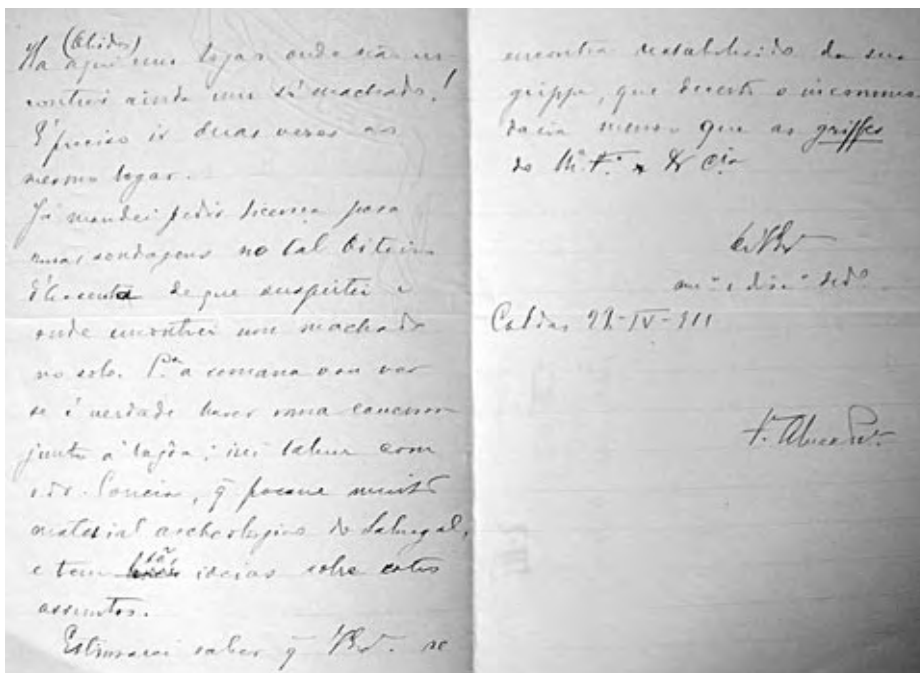 (Obidos)
Ha aqui um logar onde não en-
contrei ainda um só machado!
É preciso ir duas vezes ao
mesmo logar.
Já mandei pedir licença para
umas sondagens no tal Oiteiro
de que suspeitei e
onde encontrei um machado
no solo. P.ª a semana vou ver
se é verdade haver uma
junto á lagôa; irei talvez com
o dr. Correia, q̃ possue muito
material archeologico do Sabugal,
e tem sãs ideias sobre estes
assumtos.
Estimarei saber q̃ V. Ex.ª se
encontra restabelecido da sua
grippe, que decerto o incommo-
daria menos que as griffes
do M. F. & C.ia
De V. Ex.ª
Caldas -IV-911
F. Alves Per.ª